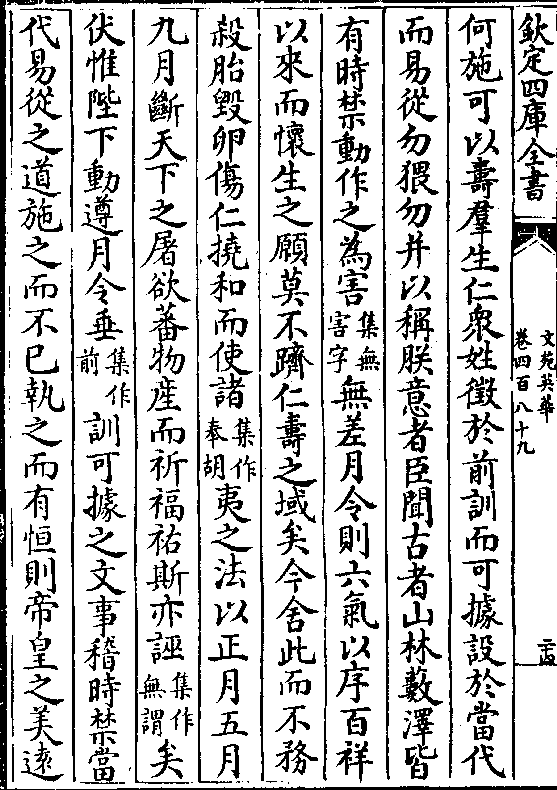 欽定四庫全書
文苑英華
卷四百八十九
二十四
何施可以壽羣生仁衆姓徵於前訓而可據設於當代
而易從勿猥勿并以稱朕意者臣聞古者山林藪澤皆
有時禁動作之為害集無害字無差月令則六氣以序百祥
以來而懷生之願莫不躋仁壽之域矣今舍此而不務
殺胎毀卵傷仁撓和而使諸集作奉胡夷之法以正月五月
九月斷天下之屠欲蕃物産而祈福祐斯亦誣集作無謂矣
伏惟陛下動遵月令垂集作前訓可據之文事稽時禁當
代易從之道施之而不已執之而有恒則帝皇之美遠